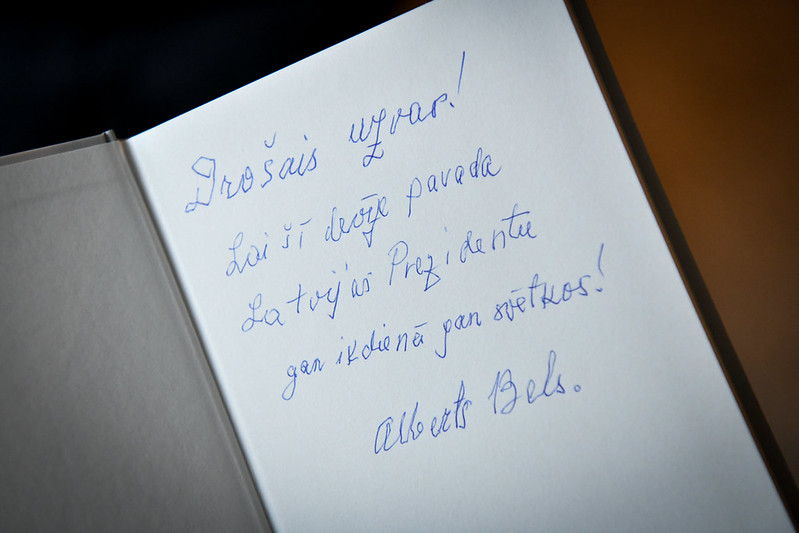 Drošais uzvar!
Lai šī devīze pavada
Latvijas Prezidentu
gan ikdienā gan svētkos!
Alberts Bels.